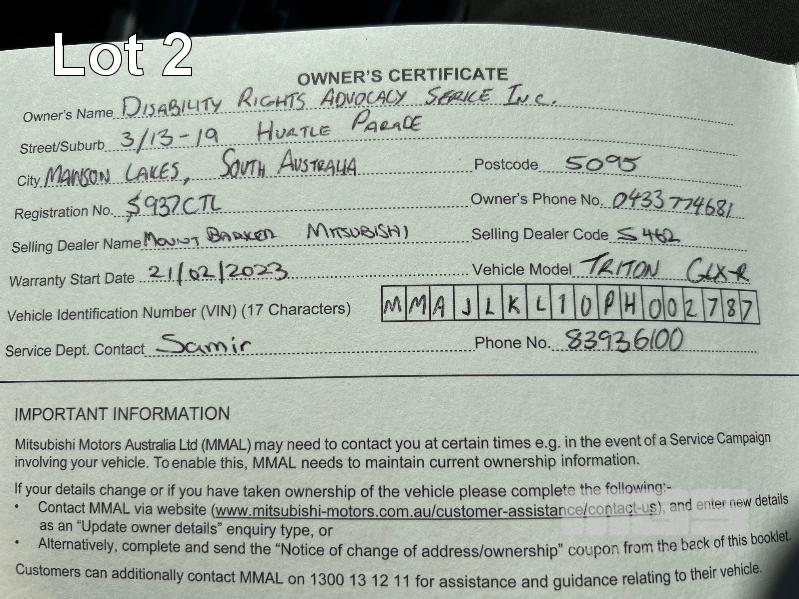 Lot 2
OWNER'S CERTIFICATE
Owner's Name DISABILITY RIGHTS ADVOCACY SERVICE INC.
Street/Suburb 3/13-19 HURTLE PARADE
City MAWSON LAKES, SOUTH AUSTRALIA Postcode 5095
Registration No. S937CTL Owner's Phone No. 0433774681
Selling Dealer Name MOUNT BARKER MITSUBISHI Selling Dealer Code S462
Warranty Start Date 21/02/2023 Vehicle Model TRITON GLX-R
Vehicle Identification Number (VIN) (17 Characters) MMAJLKL10PH002787
Service Dept. Contact Samir Phone No. 83936100
IMPORTANT INFORMATION
Mitsubishi Motors Australia Ltd (MMAL) may need to contact you at certain times e.g. in the event of a Service Campaign
involving your vehicle. To enable this, MMAL needs to maintain current ownership information.
If your details change or if you have taken ownership of the vehicle please complete the following:-
• Contact MMAL via website (www.mitsubishi-motors.com.au/customer-assistance/contact-us), and enter new details
as an "Update owner details" enquiry type, or
• Alternatively, complete and send the "Notice of change of address/ownership" coupon from the back of this booklet.
Customers can additionally contact MMAL on 1300 13 12 11 for assistance and guidance relating to their vehicle.